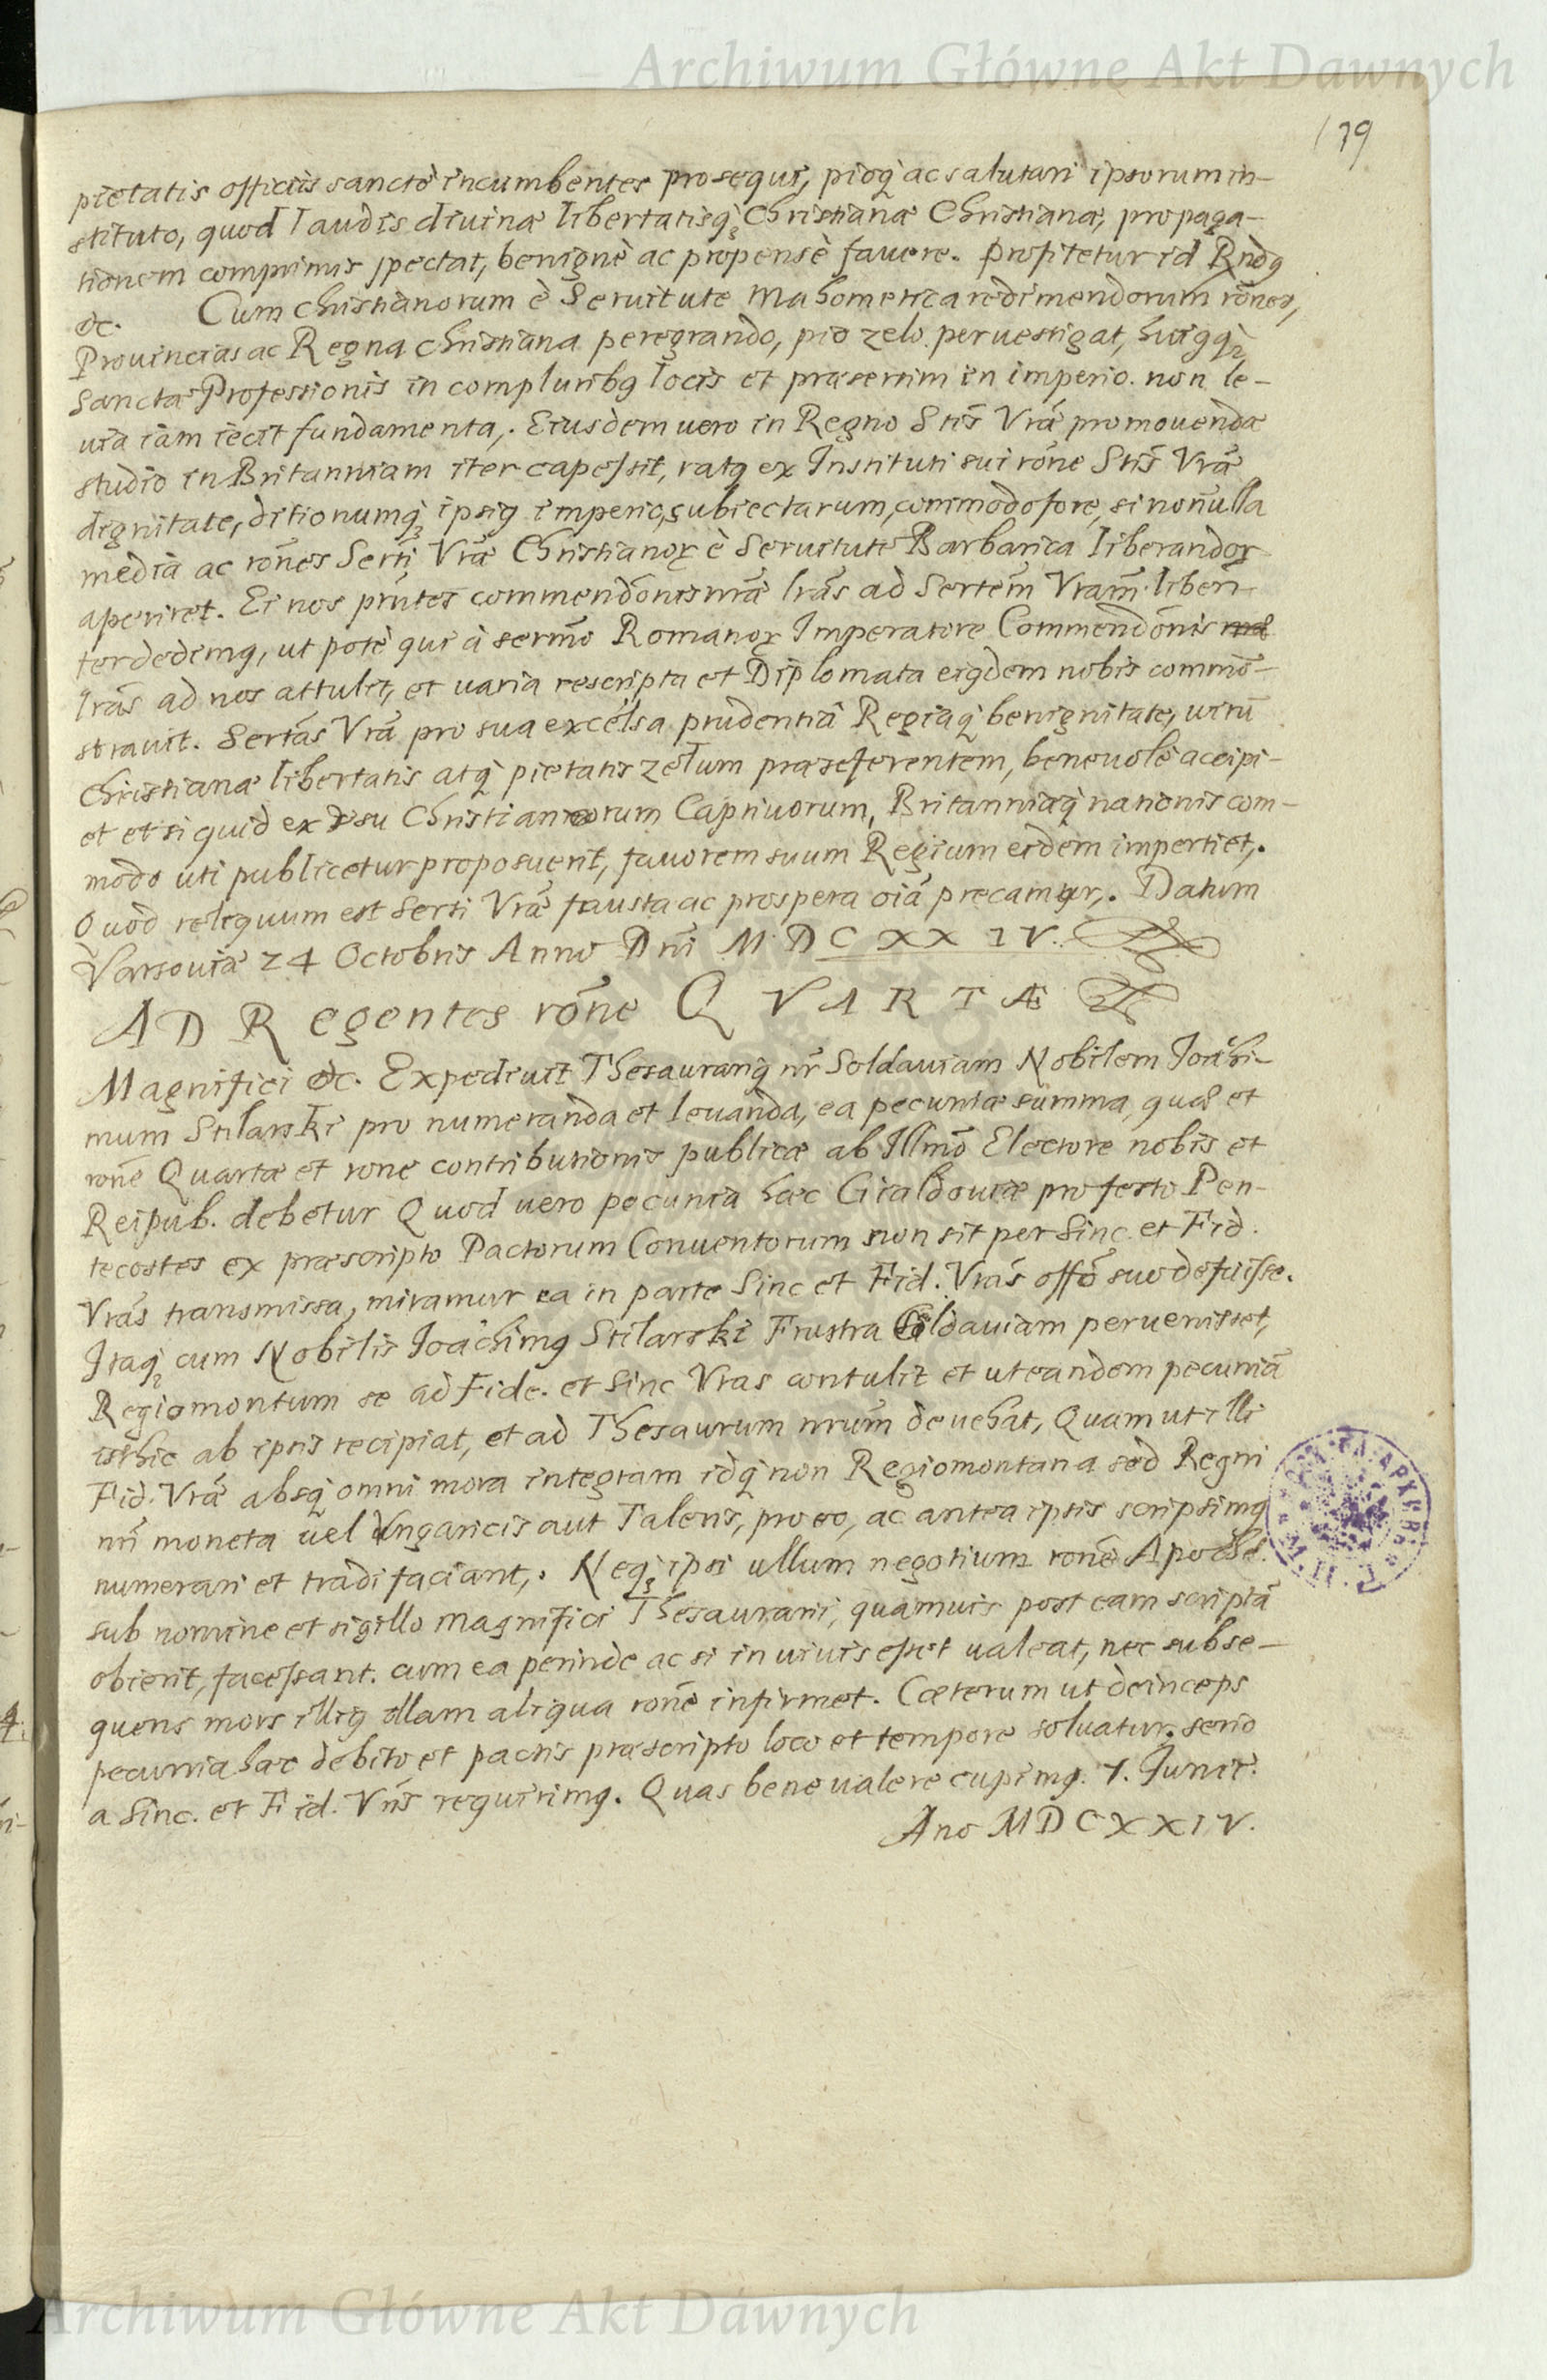 Archiwum Główne Akt Dawnych
179
pietatis officiis sanctè incumbentes prosequi, pioq̃ ac salutari ipsorum in-
stituto, quod laudis diuinæ libertatisq̃ Christianæ Christianæ, propaga-
tionem comprimis spectat, benignè ac propensè fauere. Profitetur id Rndq
etc. Cum christianorum è Seruitute Mahometica redimendorum rõnes,
Prouincias ac Regna christiana peregrando, pio zelo peruestigat, huiqq̃
Sanctæ Professionis in compluribq locis et præsertim in imperio non le-
uia iam iecit fundamenta,. Eiusdem uero in Regno Stis Vræ promouendæ
studio in Britanniam iter capessit, ratq ex Instituti sui rõne Stis Vræ
dignitate, ditionumq̃ ipsiq imperio subiectarum, commodo fore, si nonulla
media ac rõnes Serti Vræ Christianoꝝ è Seruitute Barbarica liberandoꝝ
aperiret. Ei nos pñtes commendõnis nrã lrãs ad Sertem Vram liben
ter dedimq, ut potè qui à sermo Romanoꝝ Imperatore Commendõnis
lrãs ad nos attulit, et uaria rescripta et Diplomata eiqdem nobis commõ-
strauit. Sertas Vrã pro sua excelsa prudentiâ Regiaq̃ benignitate, uirũ
Christianæ libertatis atq̃ pietatis zelum præseferentem, beneuolè accipi-
et et si quid ex Vsu Christianorum Captiuorum, Britanniæq̃ nationis com-
modo uti publicetur proposuerit, fauorem suum Regium eidem impertiet,.
Quod reliquum est Serti Vræ fausta ac prospera oiã precamur,. Datum
Varsouiæ 24 Octobris Anno Dni MDCXXIV.
AD Regentes rõne QVARTÆ
Magnifici etc. Expediuit Thesaurariq nr̃ Soldauiam Nobilem Joãchi-
mum Stilarski pro numeranda et leuanda, ea pecuniæ summa, quæ et
rone Quartæ et rone contributionis publicæ ab Illmõ Electore nobis et
Reipub. debetur Quod uero pecunia hæc Gialdouiæ pro festo Pen-
tecostes ex præscripto Pactorum Conuentorum non sit per Sinc. et Fid.
Vras transmissa, miramur ea in parte Sinc et Fid. Vras offõ suo defuisse.
Itaq̃ cum Nobilis Joachimq Stilarski Frustra Soldauiam peruenisset,
Regiomontum se ad Fide. et Sinc Vras contulit et ut eandem pecuniã
isthic ab ipsis recipiat, et ad Thesaurum nrum deuehat, Quam ut illi
Fid. Vræ absq̃ omni mora integram idq̃ non Regiomontana sed Regni
nri moneta uel Vngaricis aut Taleris, pro eo, ac antea ipsis scripsimq
numerari et tradi faciant,. Neq̃ ipsi ullum negotium ronè Apochæ
sub nomine et sigillo Magnifici Thesaurarii, quamuis post eam scriptã
obierit, facessant. cum ea perinde ac si in uiuis esset ualeat, nec subse-
quens mors illiq illam aliqua ronè infirmet. Cæterum ut deinceps
pecunia hæc debito et pactis præscripto loco et tempore soluatur, serio
a Sinc. et Fid. Vris requirimq. Quas bene ualere cupimq. 7. Junii.
Ano MDCXXIV.
Archiwum Główne Akt Dawnych